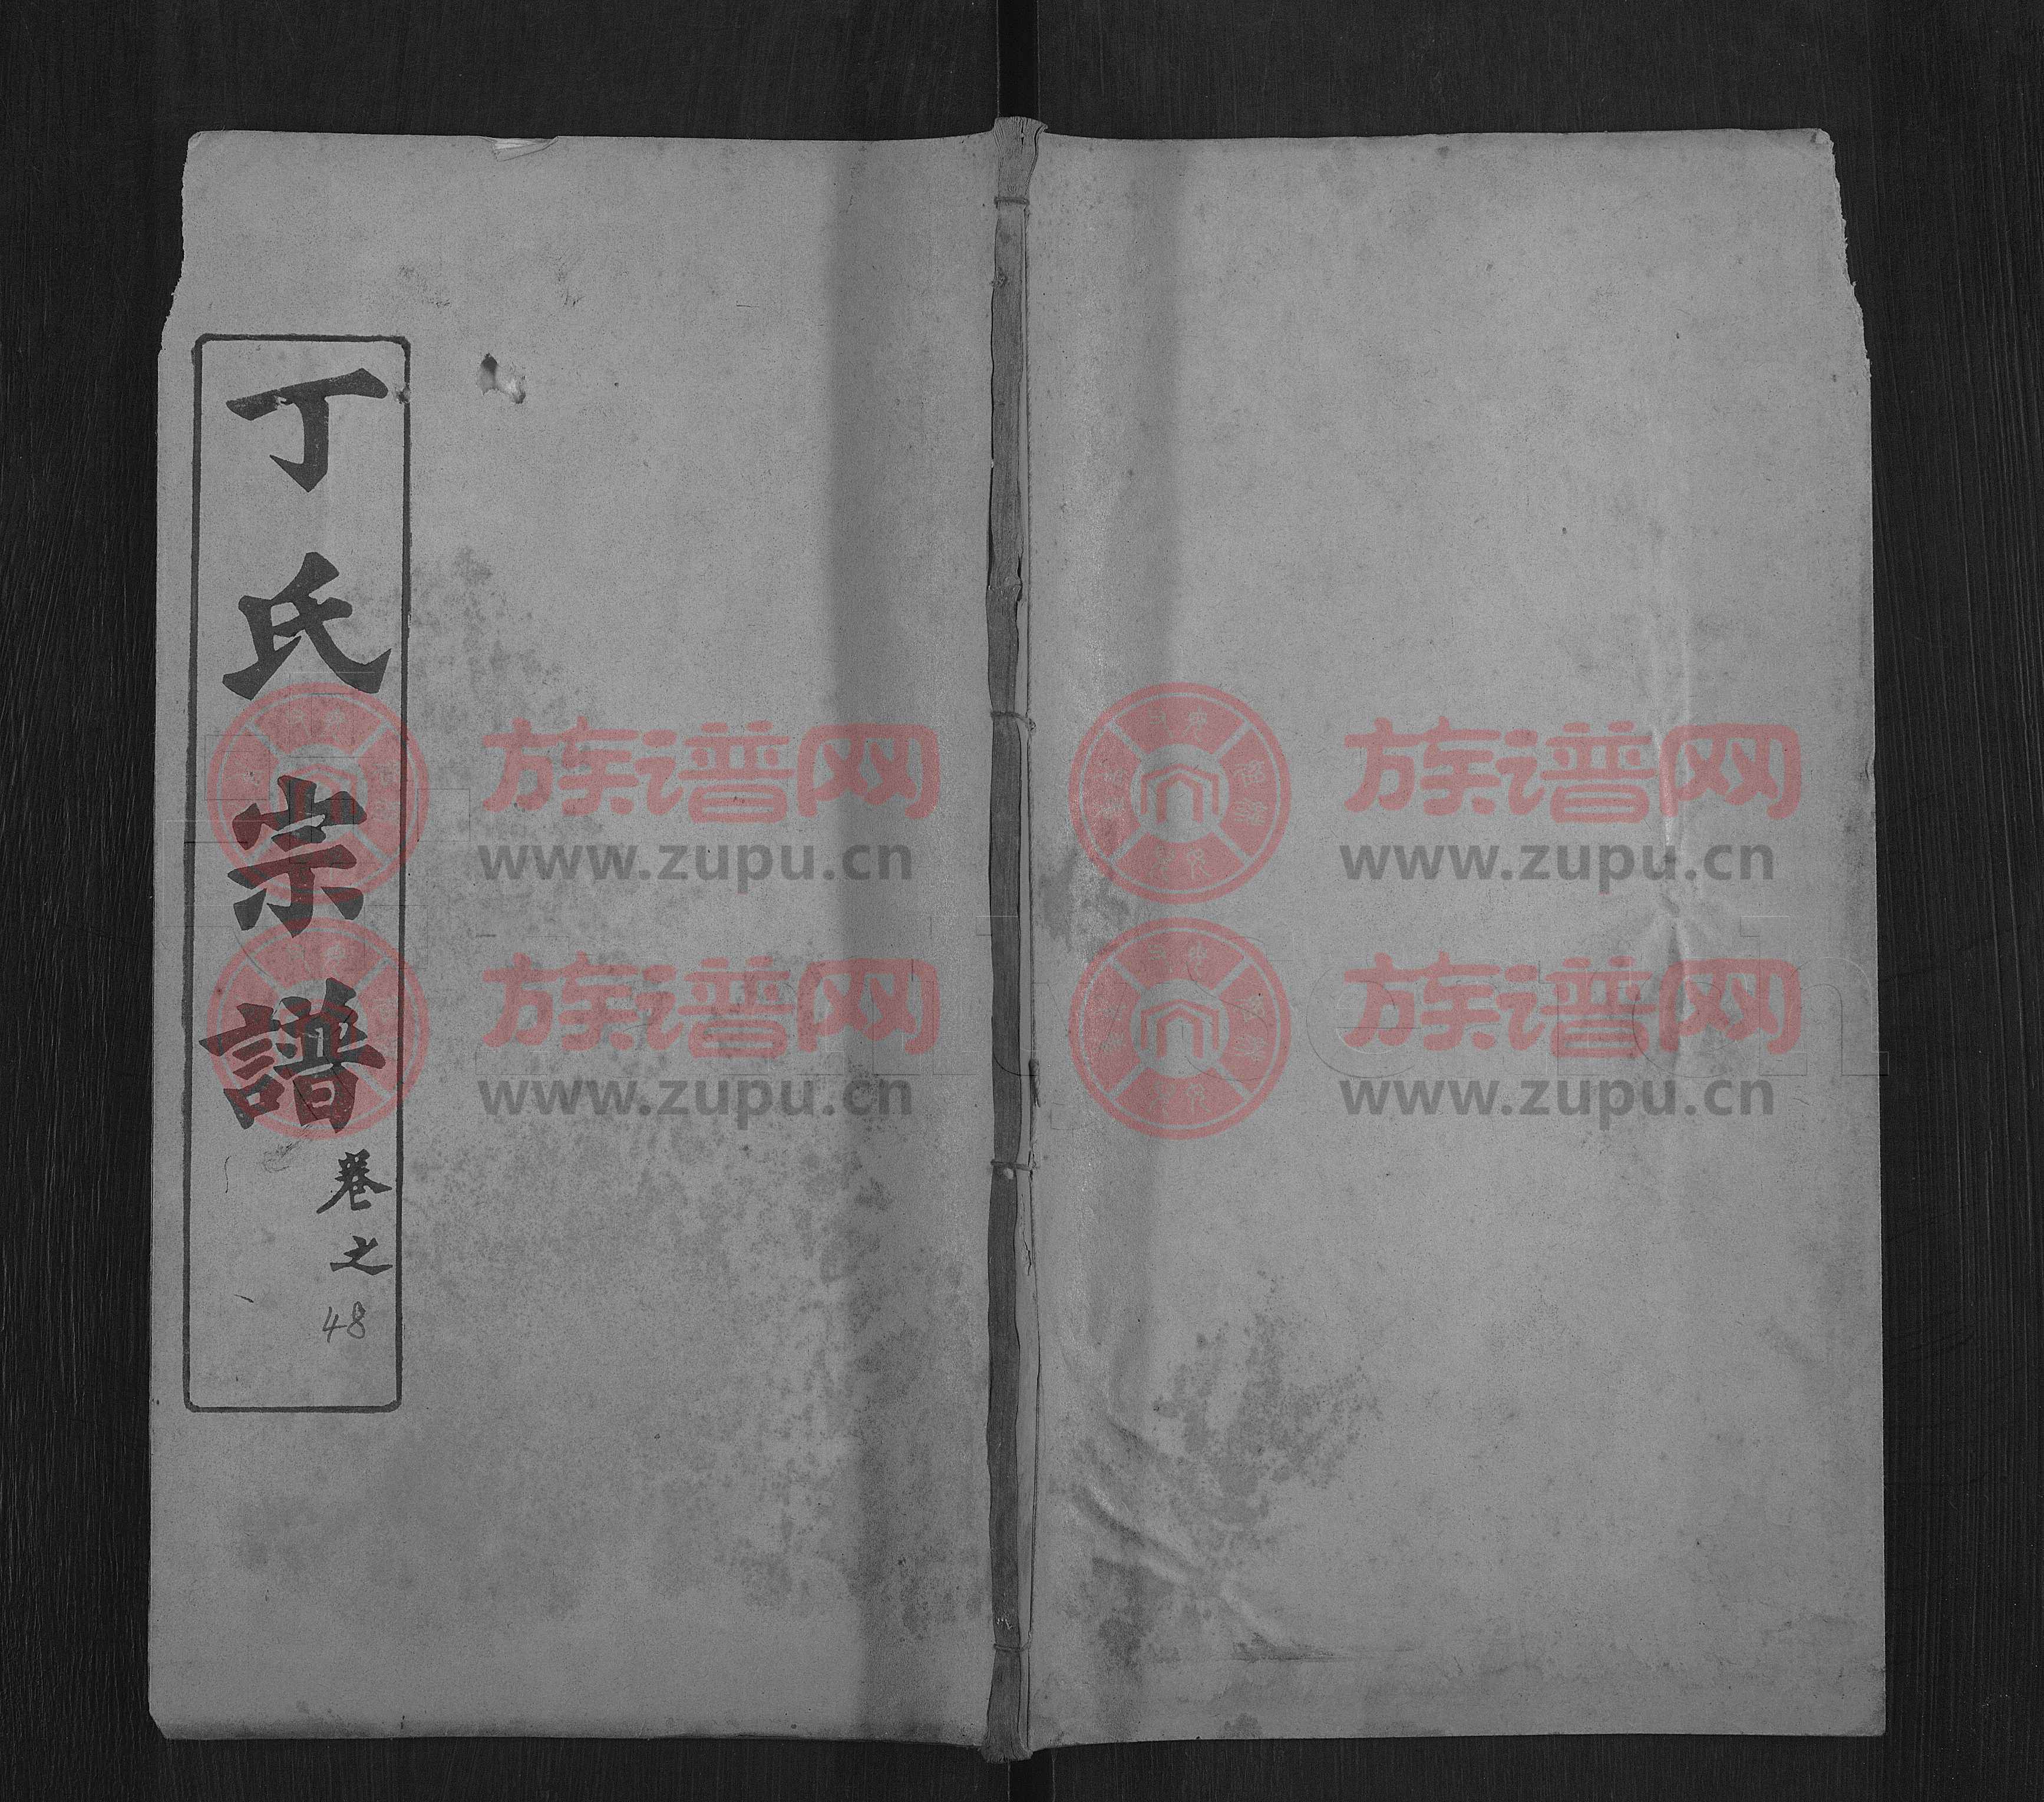 丁氏宗譜
卷之48
族谱网
www.zupu.cn
族谱网
www.zupu.cn
族谱网
www.zupu.cn
族谱网
www.zupu.cn